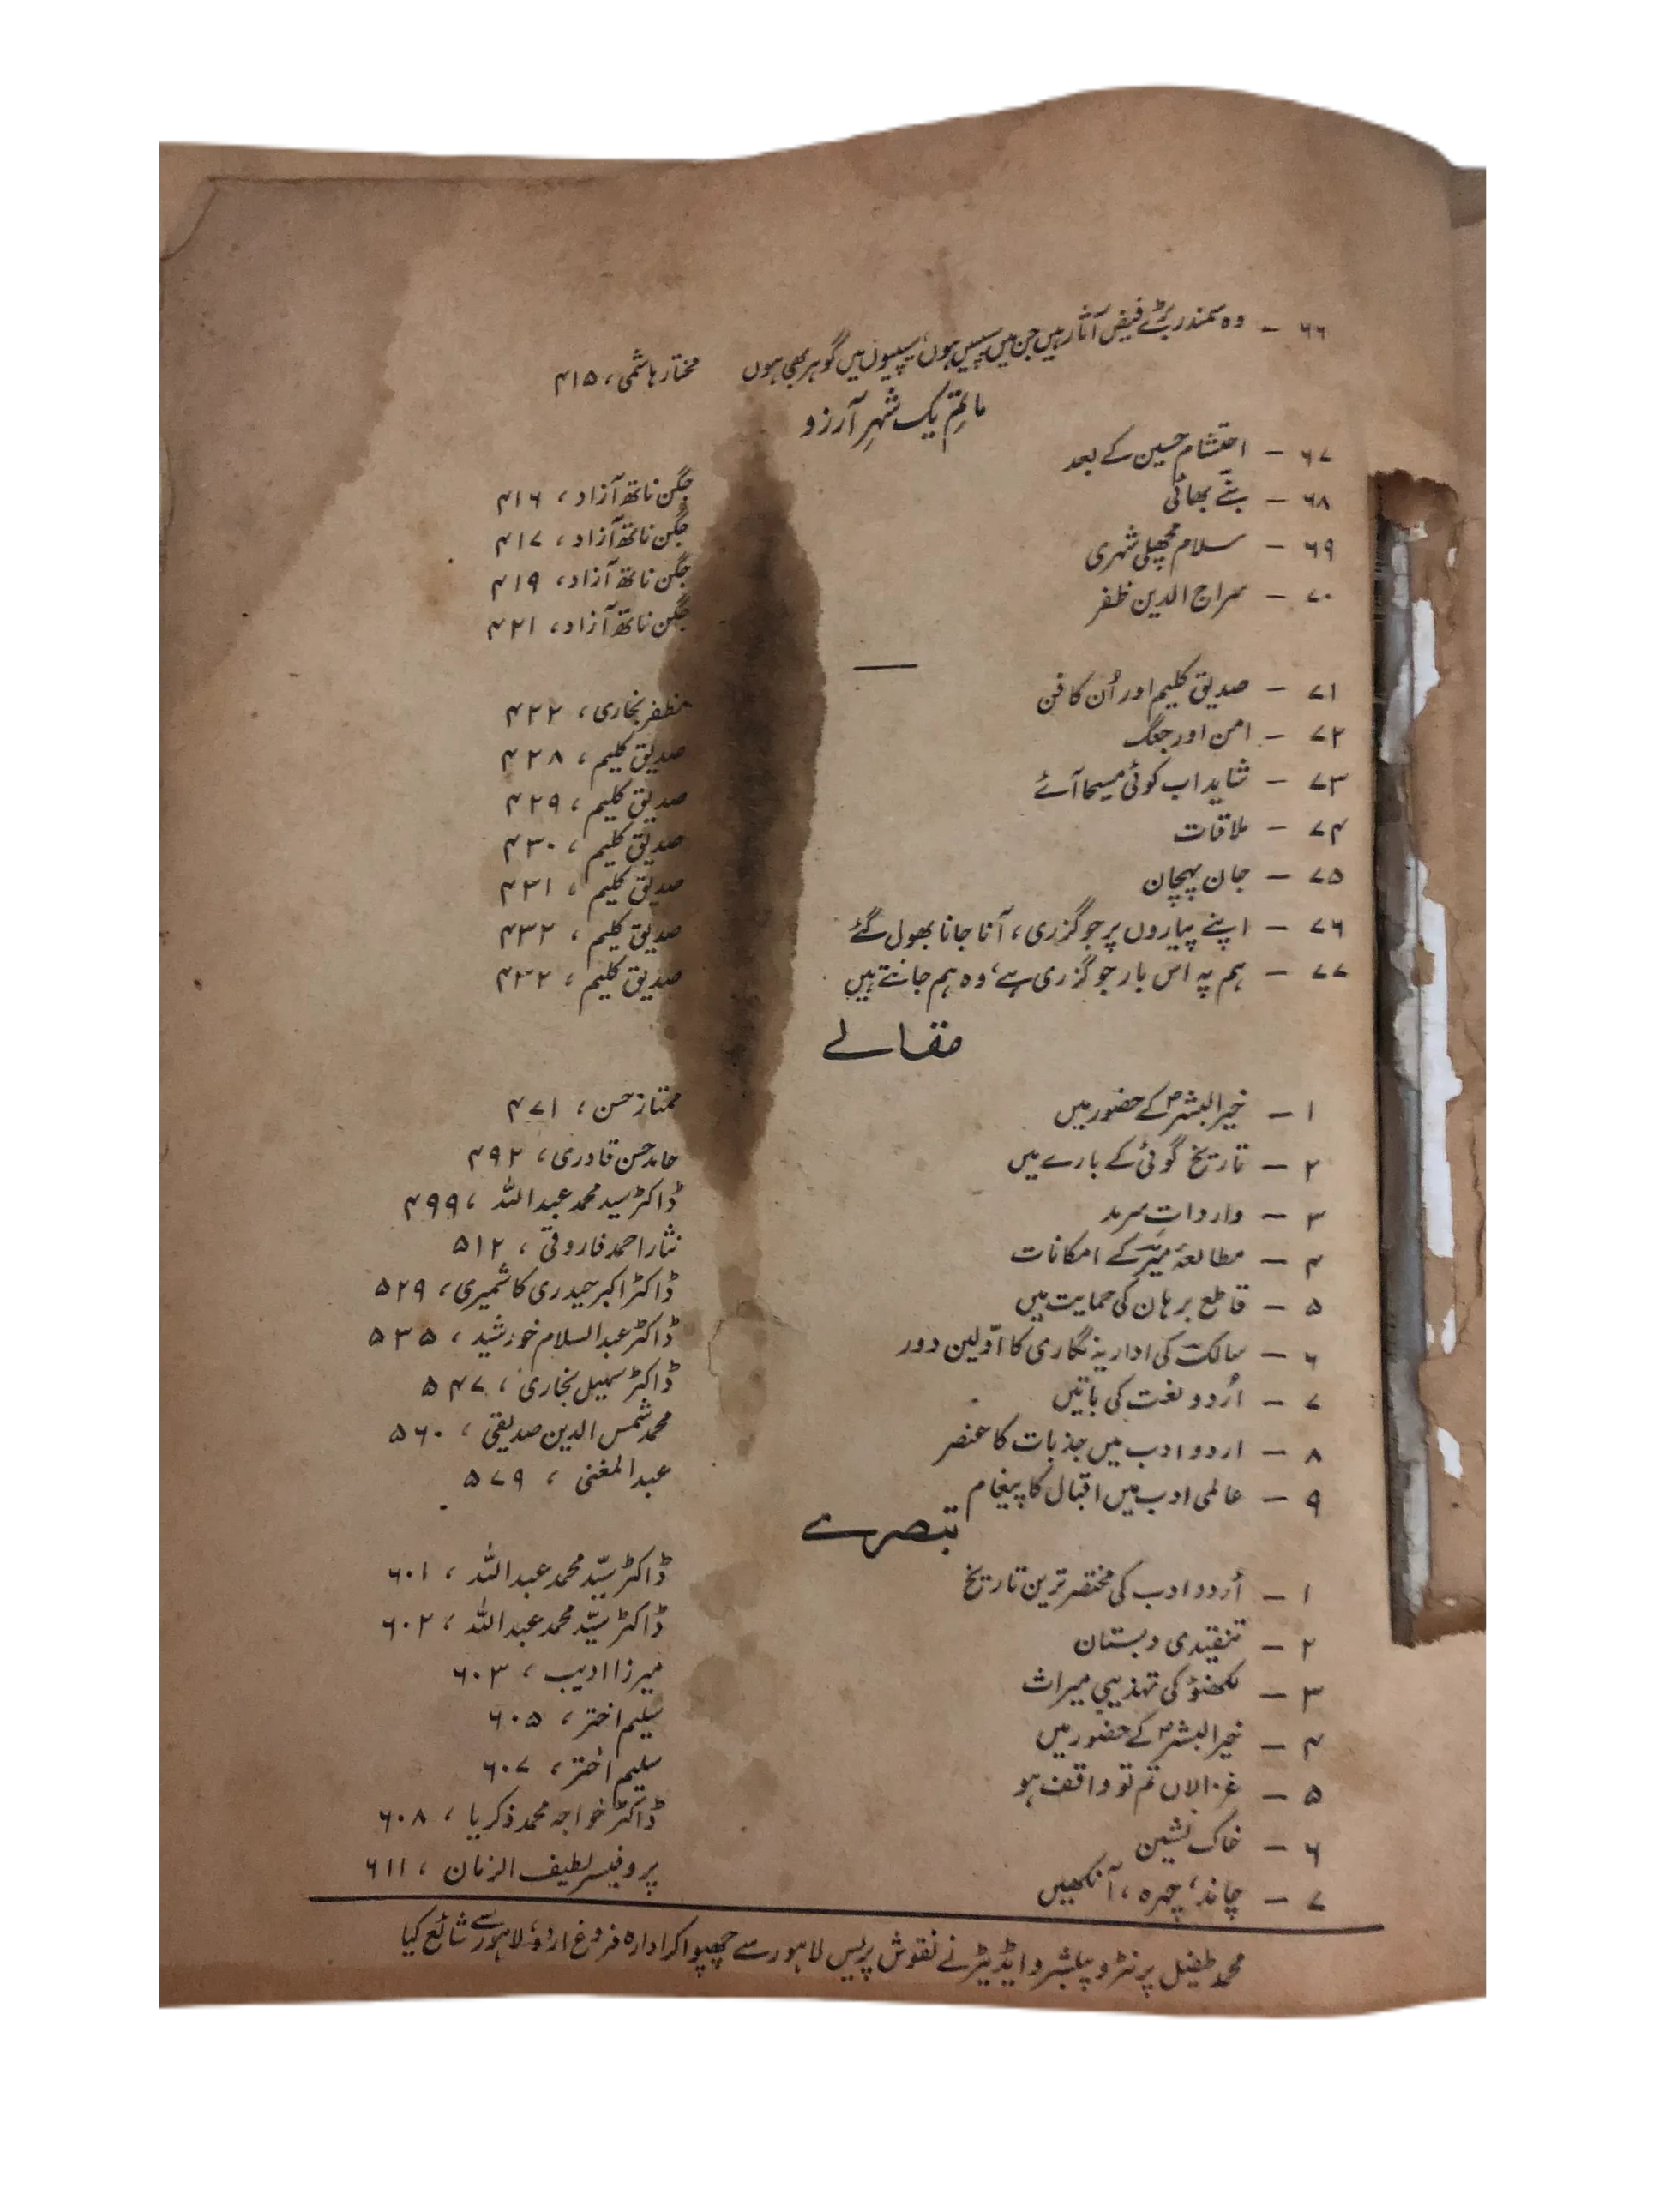 ۶۶ - وہ سمندر بڑے فیض آثار ہیں جن میں سیپیں ہوں، سیپیوں میں گوہر بھی ہوں مختار ہاشمی، ۴۱۵
ماتمِ یک شہرِ آرزو
۶۷ - احتشام حسین کے بعد جگن ناتھ آزاد، ۴۱۶
۶۸ - بنّے بھائی جگن ناتھ آزاد، ۴۱۷
۶۹ - سلام مچھلی شہری جگن ناتھ آزاد، ۴۱۹
۷۰ - سراج الدین ظفر جگن ناتھ آزاد، ۴۲۱
۷۱ - صدیق کلیم اور اُن کا فن مظفر بخاری، ۴۲۲
۷۲ - امن اور جنگ صدیق کلیم، ۴۲۸
۷۳ - شاید اب کوئی مسیحا آئے صدیق کلیم، ۴۲۹
۷۴ - ملاقات صدیق کلیم، ۴۳۰
۷۵ - جان پہچان صدیق کلیم، ۴۳۱
۷۶ - اپنے پیاروں پر جو گزری، آنا جانا بھول گئے صدیق کلیم، ۴۳۲
۷۷ - ہم پہ اس بار جو گزری ہے، وہ ہم جانتے ہیں صدیق کلیم، ۴۳۲
مقالے
۱ - خیرالبشرؐ کے حضور میں ممتاز حسن، ۴۷۱
۲ - تاریخ گوئی کے بارے میں حامد حسن قادری، ۴۹۲
۳ - وارداتِ سرمد ڈاکٹر سید محمد عبداللہ، ۴۹۹
۴ - مطالعۂ میر کے امکانات نثار احمد فاروقی، ۵۱۲
۵ - قاطع برہان کی حمایت میں ڈاکٹر اکبر حیدری کاشمیری، ۵۲۹
۶ - سالک کی اداریہ نگاری کا اوّلین دور ڈاکٹر عبدالسلام خورشید، ۵۳۵
۷ - اُردو لغت کی باتیں ڈاکٹر سہیل بخاری، ۵۴۷
۸ - اردو ادب میں جذبات کا عنصر محمد شمس الدین صدیقی، ۵۶۰
۹ - عالمی ادب میں اقبال کا پیغام عبدالمغنی، ۵۷۹
تبصرے
۱ - اُردو ادب کی مختصر ترین تاریخ ڈاکٹر سیّد محمد عبداللہ، ۶۰۱
۲ - تنقیدی دبستان ڈاکٹر سیّد محمد عبداللہ، ۶۰۲
۳ - لکھنؤ کی تہذیبی میراث میرزا ادیب، ۶۰۳
۴ - خیرالبشرؐ کے حضور میں سلیم اختر، ۶۰۵
۵ - غزالاں تم تو واقف ہو سلیم اختر، ۶۰۷
۶ - خاک نشین ڈاکٹر خواجہ محمد ذکریا، ۶۰۸
۷ - چاند، چہرہ، آنکھیں پروفیسر لطیف الزمان، ۶۱۱
محمد طفیل پرنٹر و پبلشر و ایڈیٹر نے نقوش پریس لاہور سے چھپوا کر ادارہ فروغ اردو، لاہور سے شائع کیا